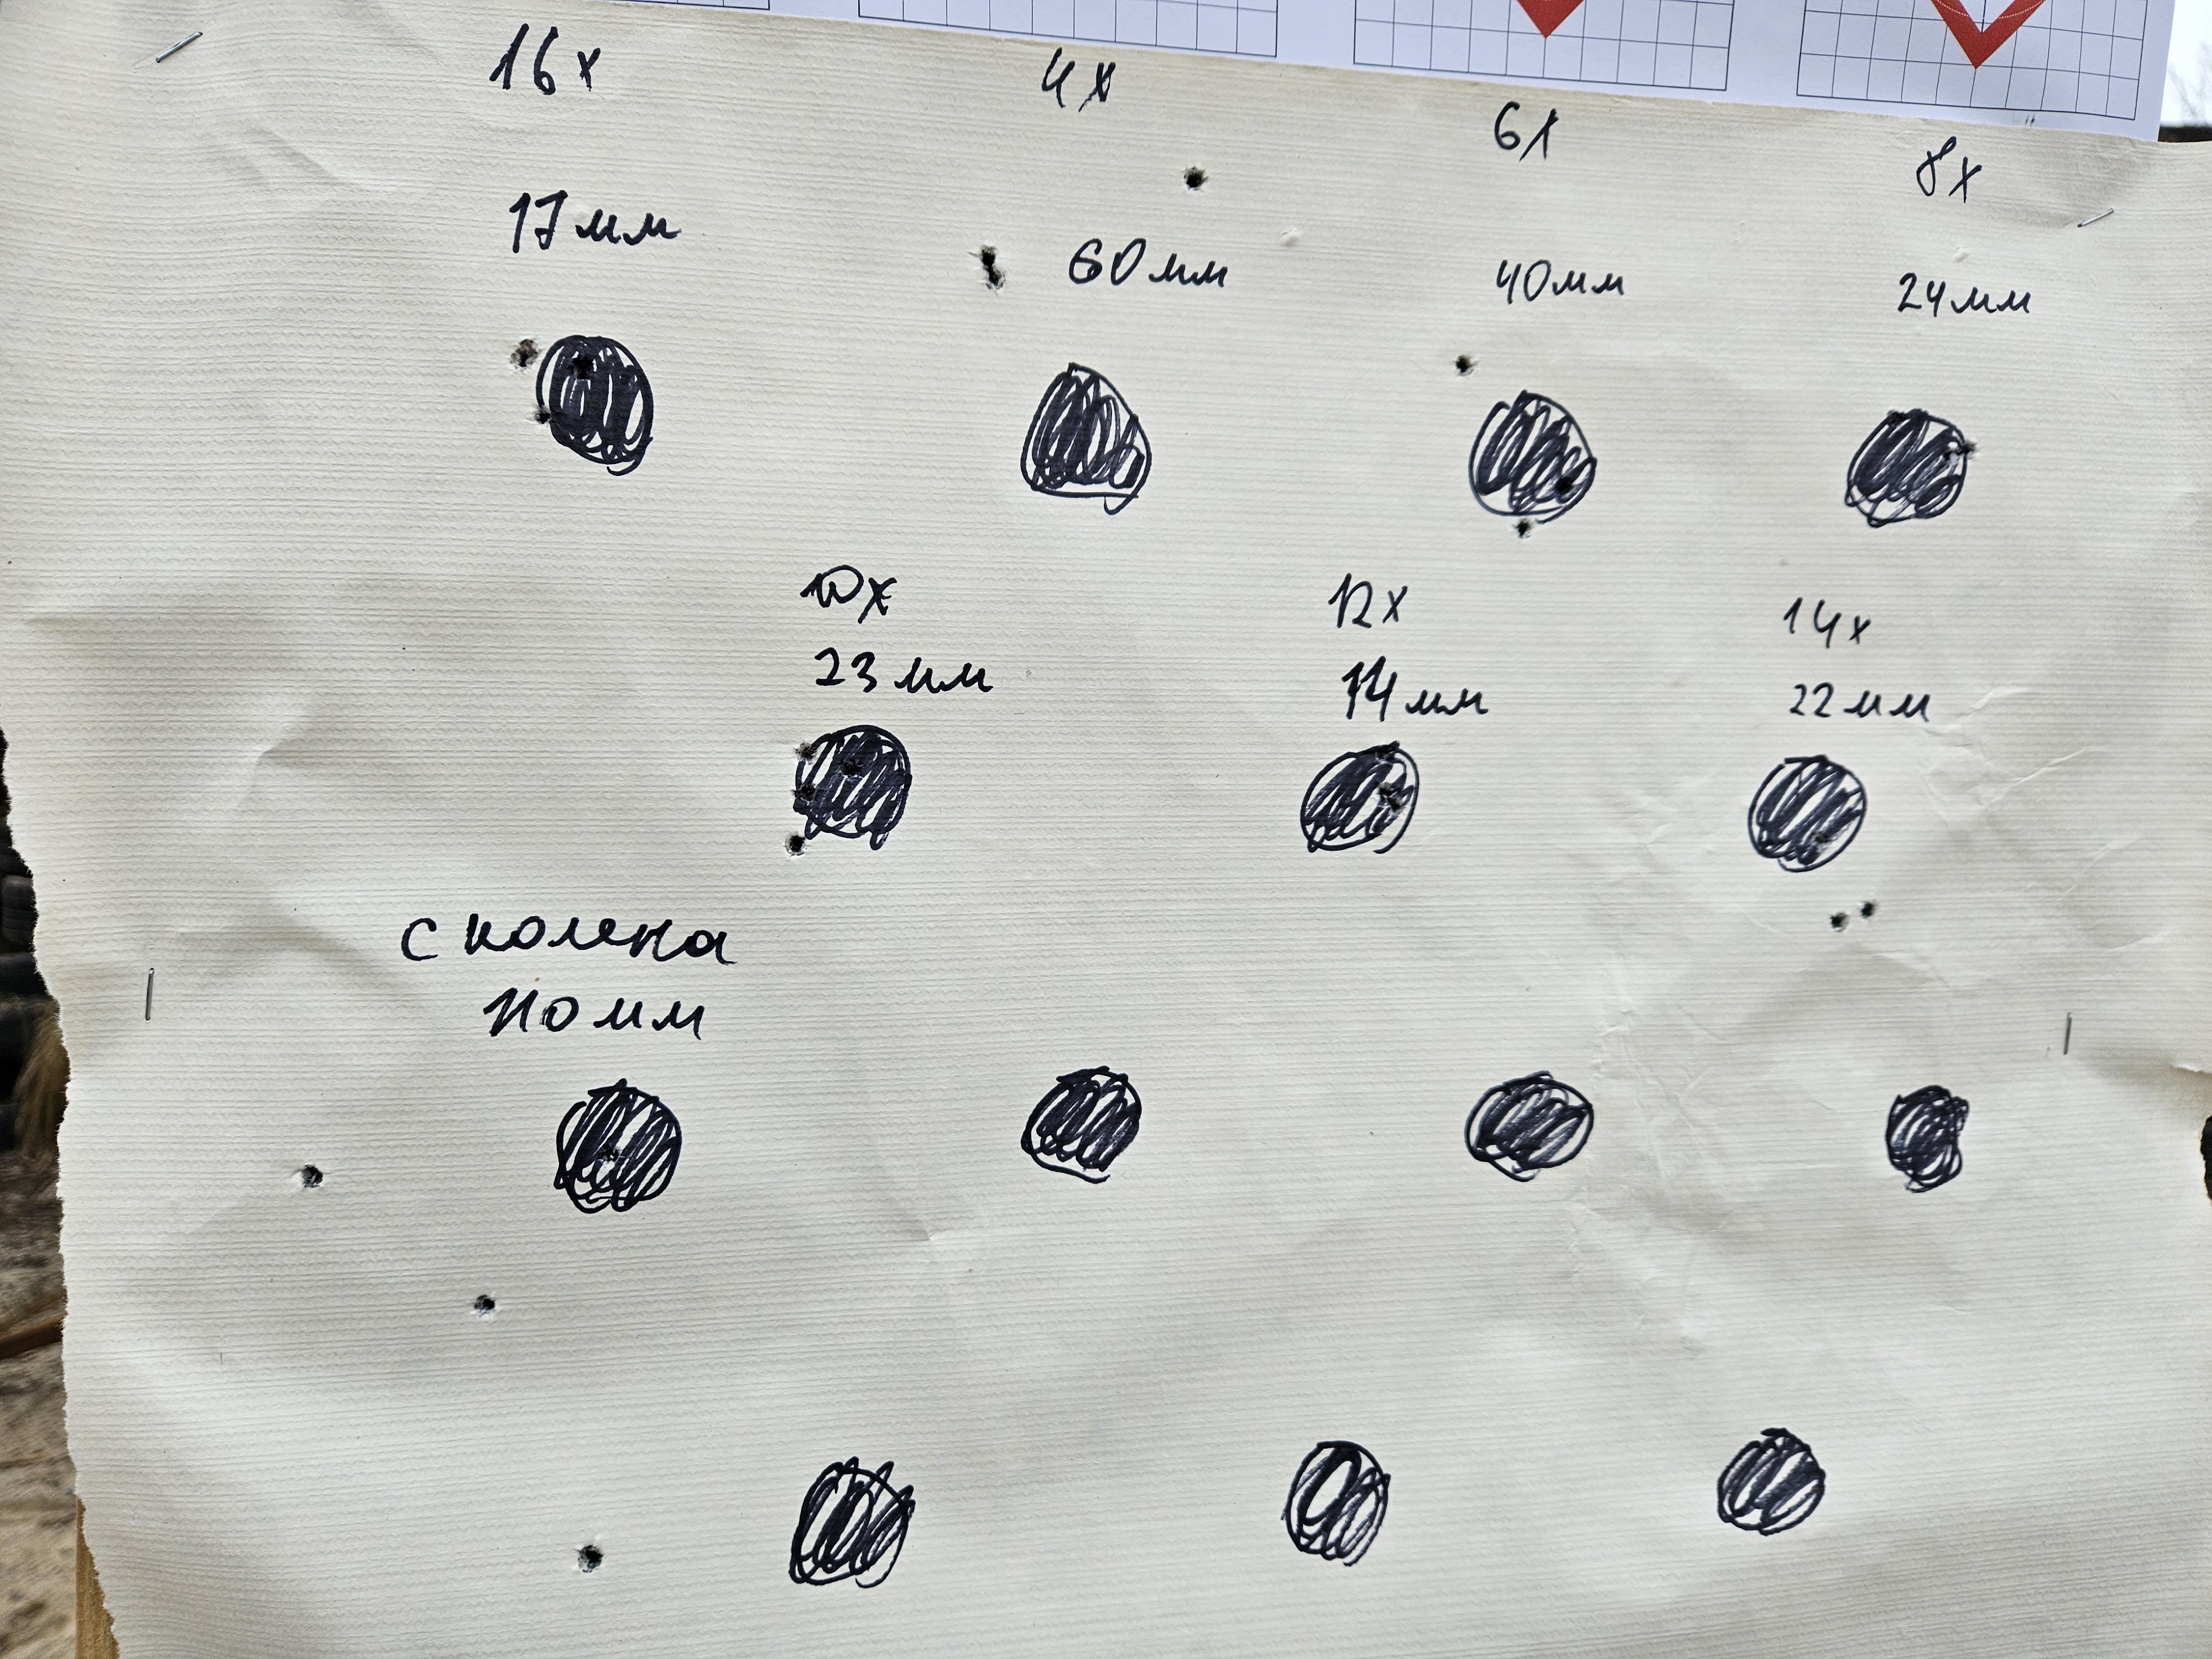 16x
17мм
4x
60мм
6x
40мм
8x
24мм
10x
23мм
12x
14мм
14x
22мм
с колена
110мм